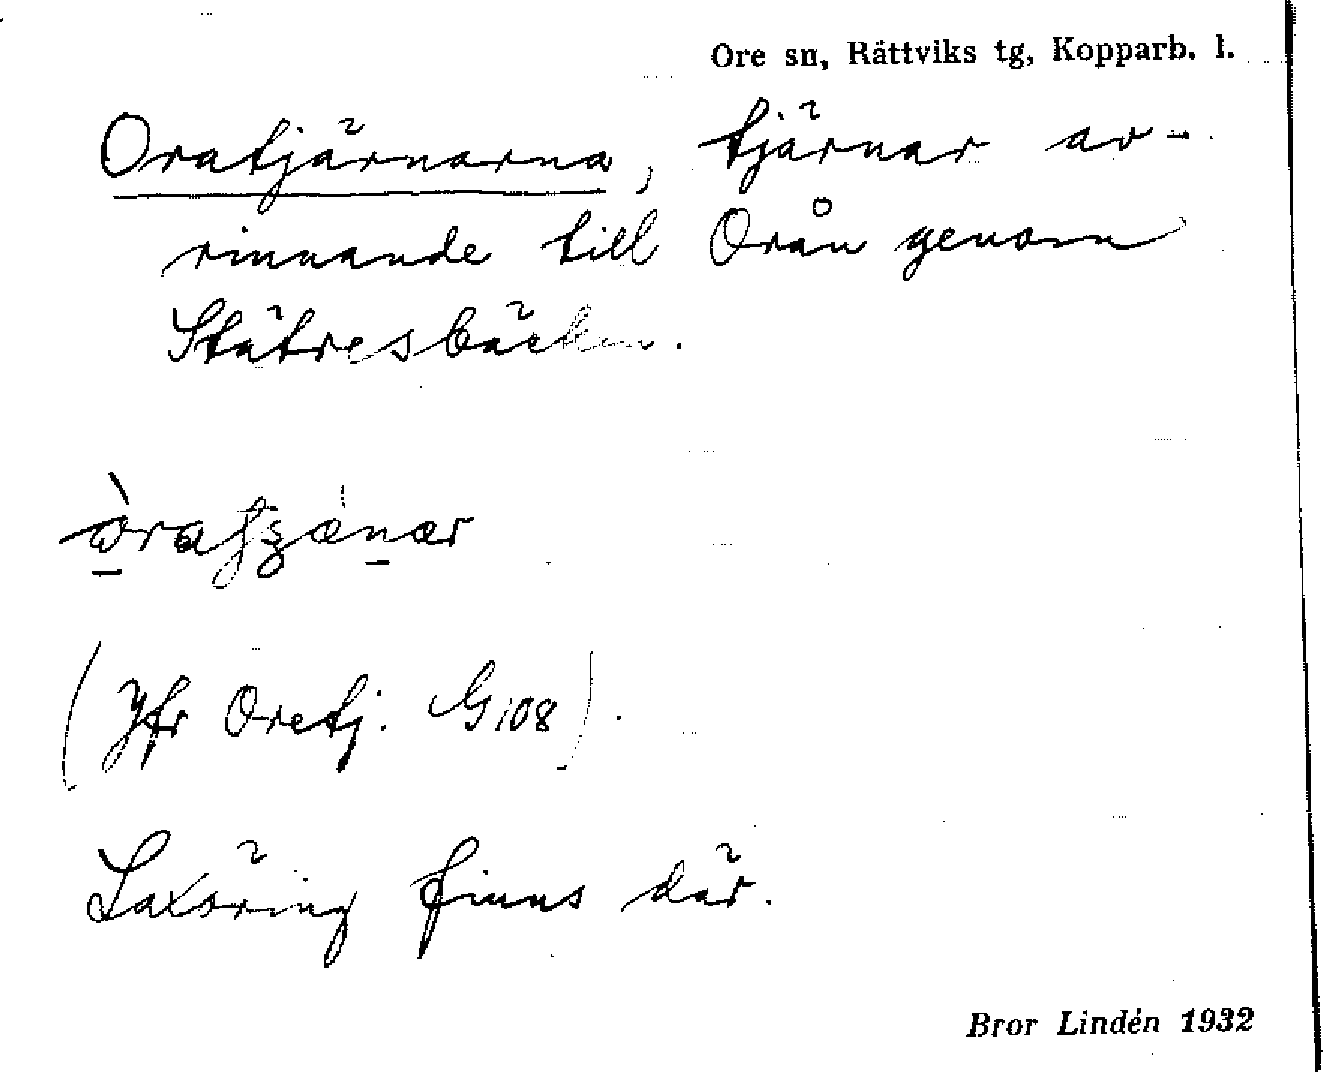 Ore sn, Rättviks tg, Kopparb. l.
Oratjärnarna, tjärnar av-
rinnande till Orån genom
Stätresbäcken.
(Jfr Oretj. G 108).
Laxöring finns där.
Bror Lindén 1932